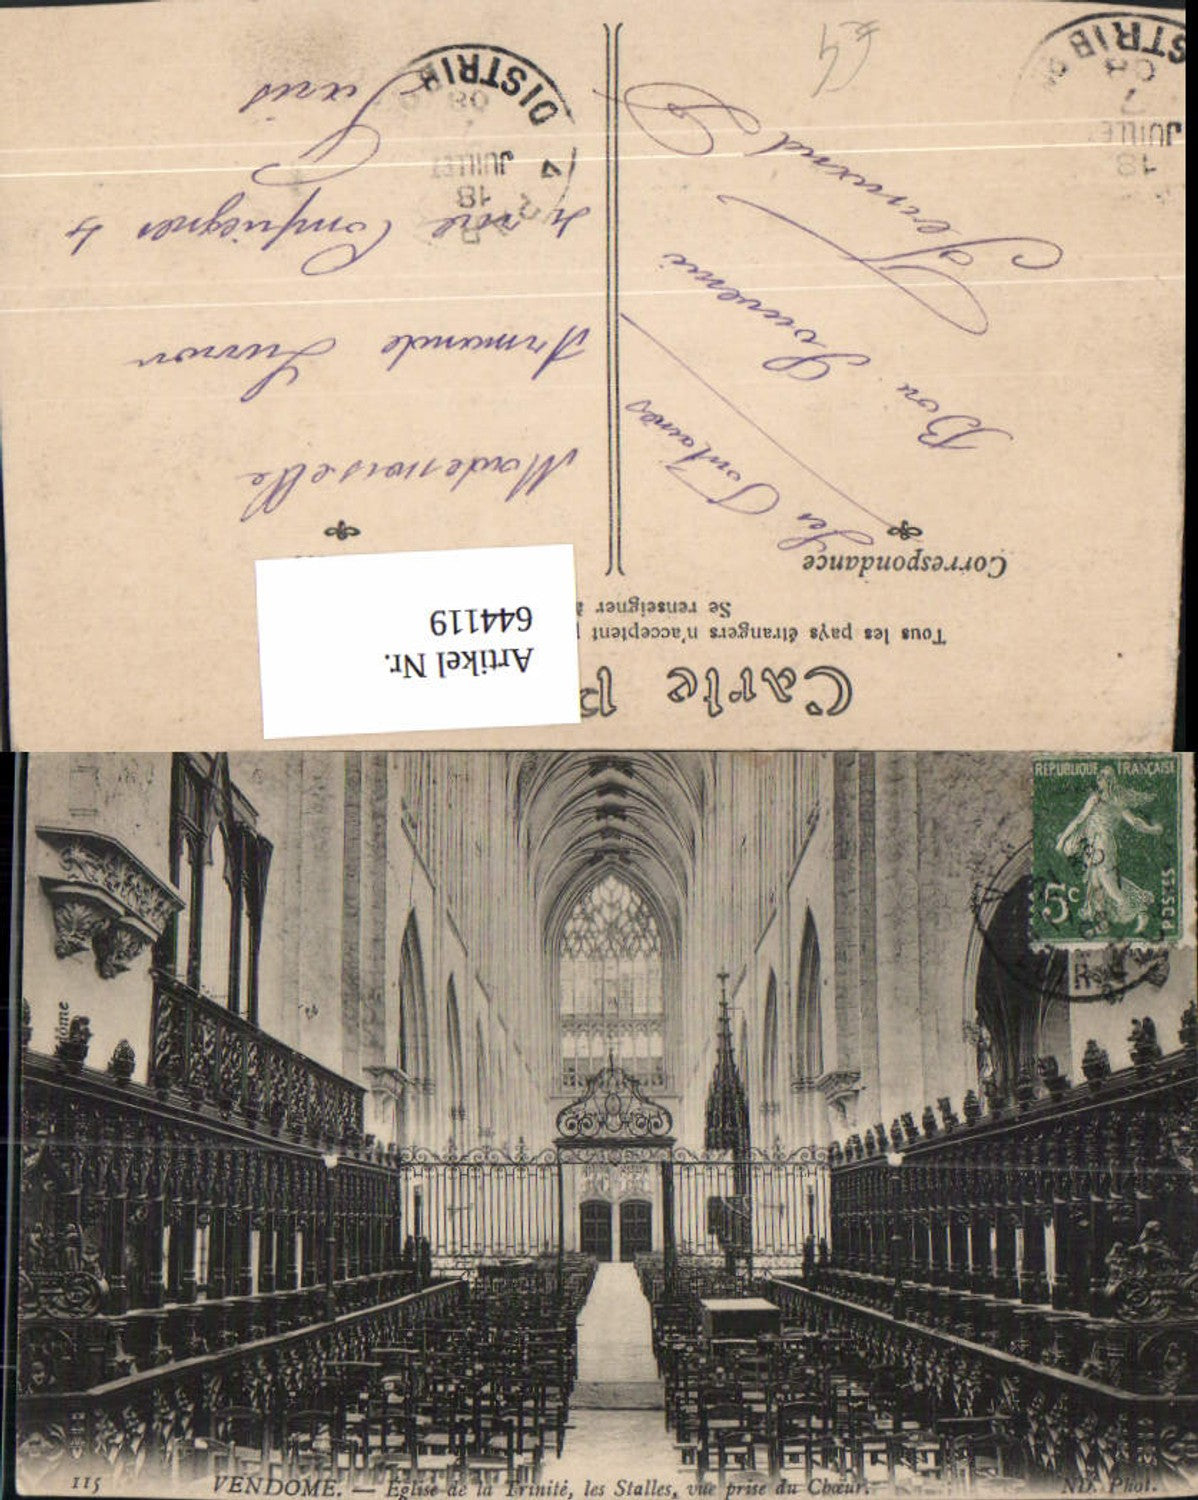 Carte p
Tous les pays étrangers n'acceptent
Se renseigner à
Correspondance
Artikel Nr.
644119
Les Fontaines
Bon Souvenir
Mademoiselle
Armande
4 rue Compiègne 4
Paris
DISTRIB
18
JUILLET
08
DISTRIB
18
JUILLET
7
08
£4
REPUBLIQUE FRANÇAISE
5c
POSTES
115 VENDOME. — Église de la Trinité, les Stalles, vue prise du Chœur. ND. Phot.